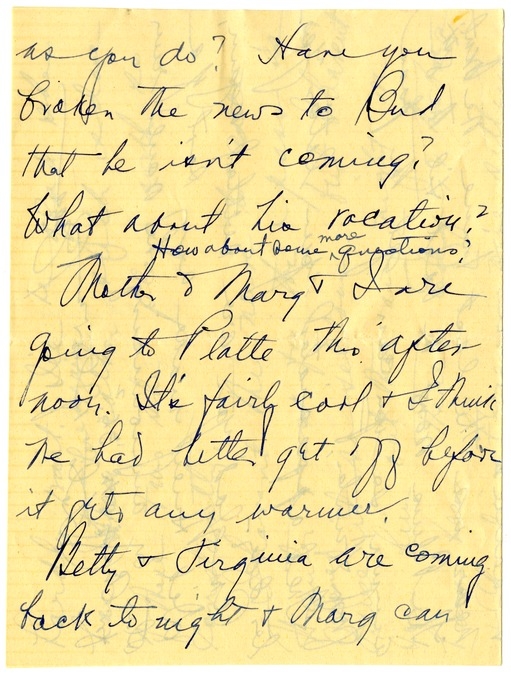 as you do? Have you
broken the news to Bud
that he isn't coming?
What about his vacation?
How about some more questions?
Mother & Marg & I are
going to Platte this after-
noon. It's fairly cool & I think
we had better get off before
it gets any warmer.
Betty & Virginia are coming
back tonight & Marg can